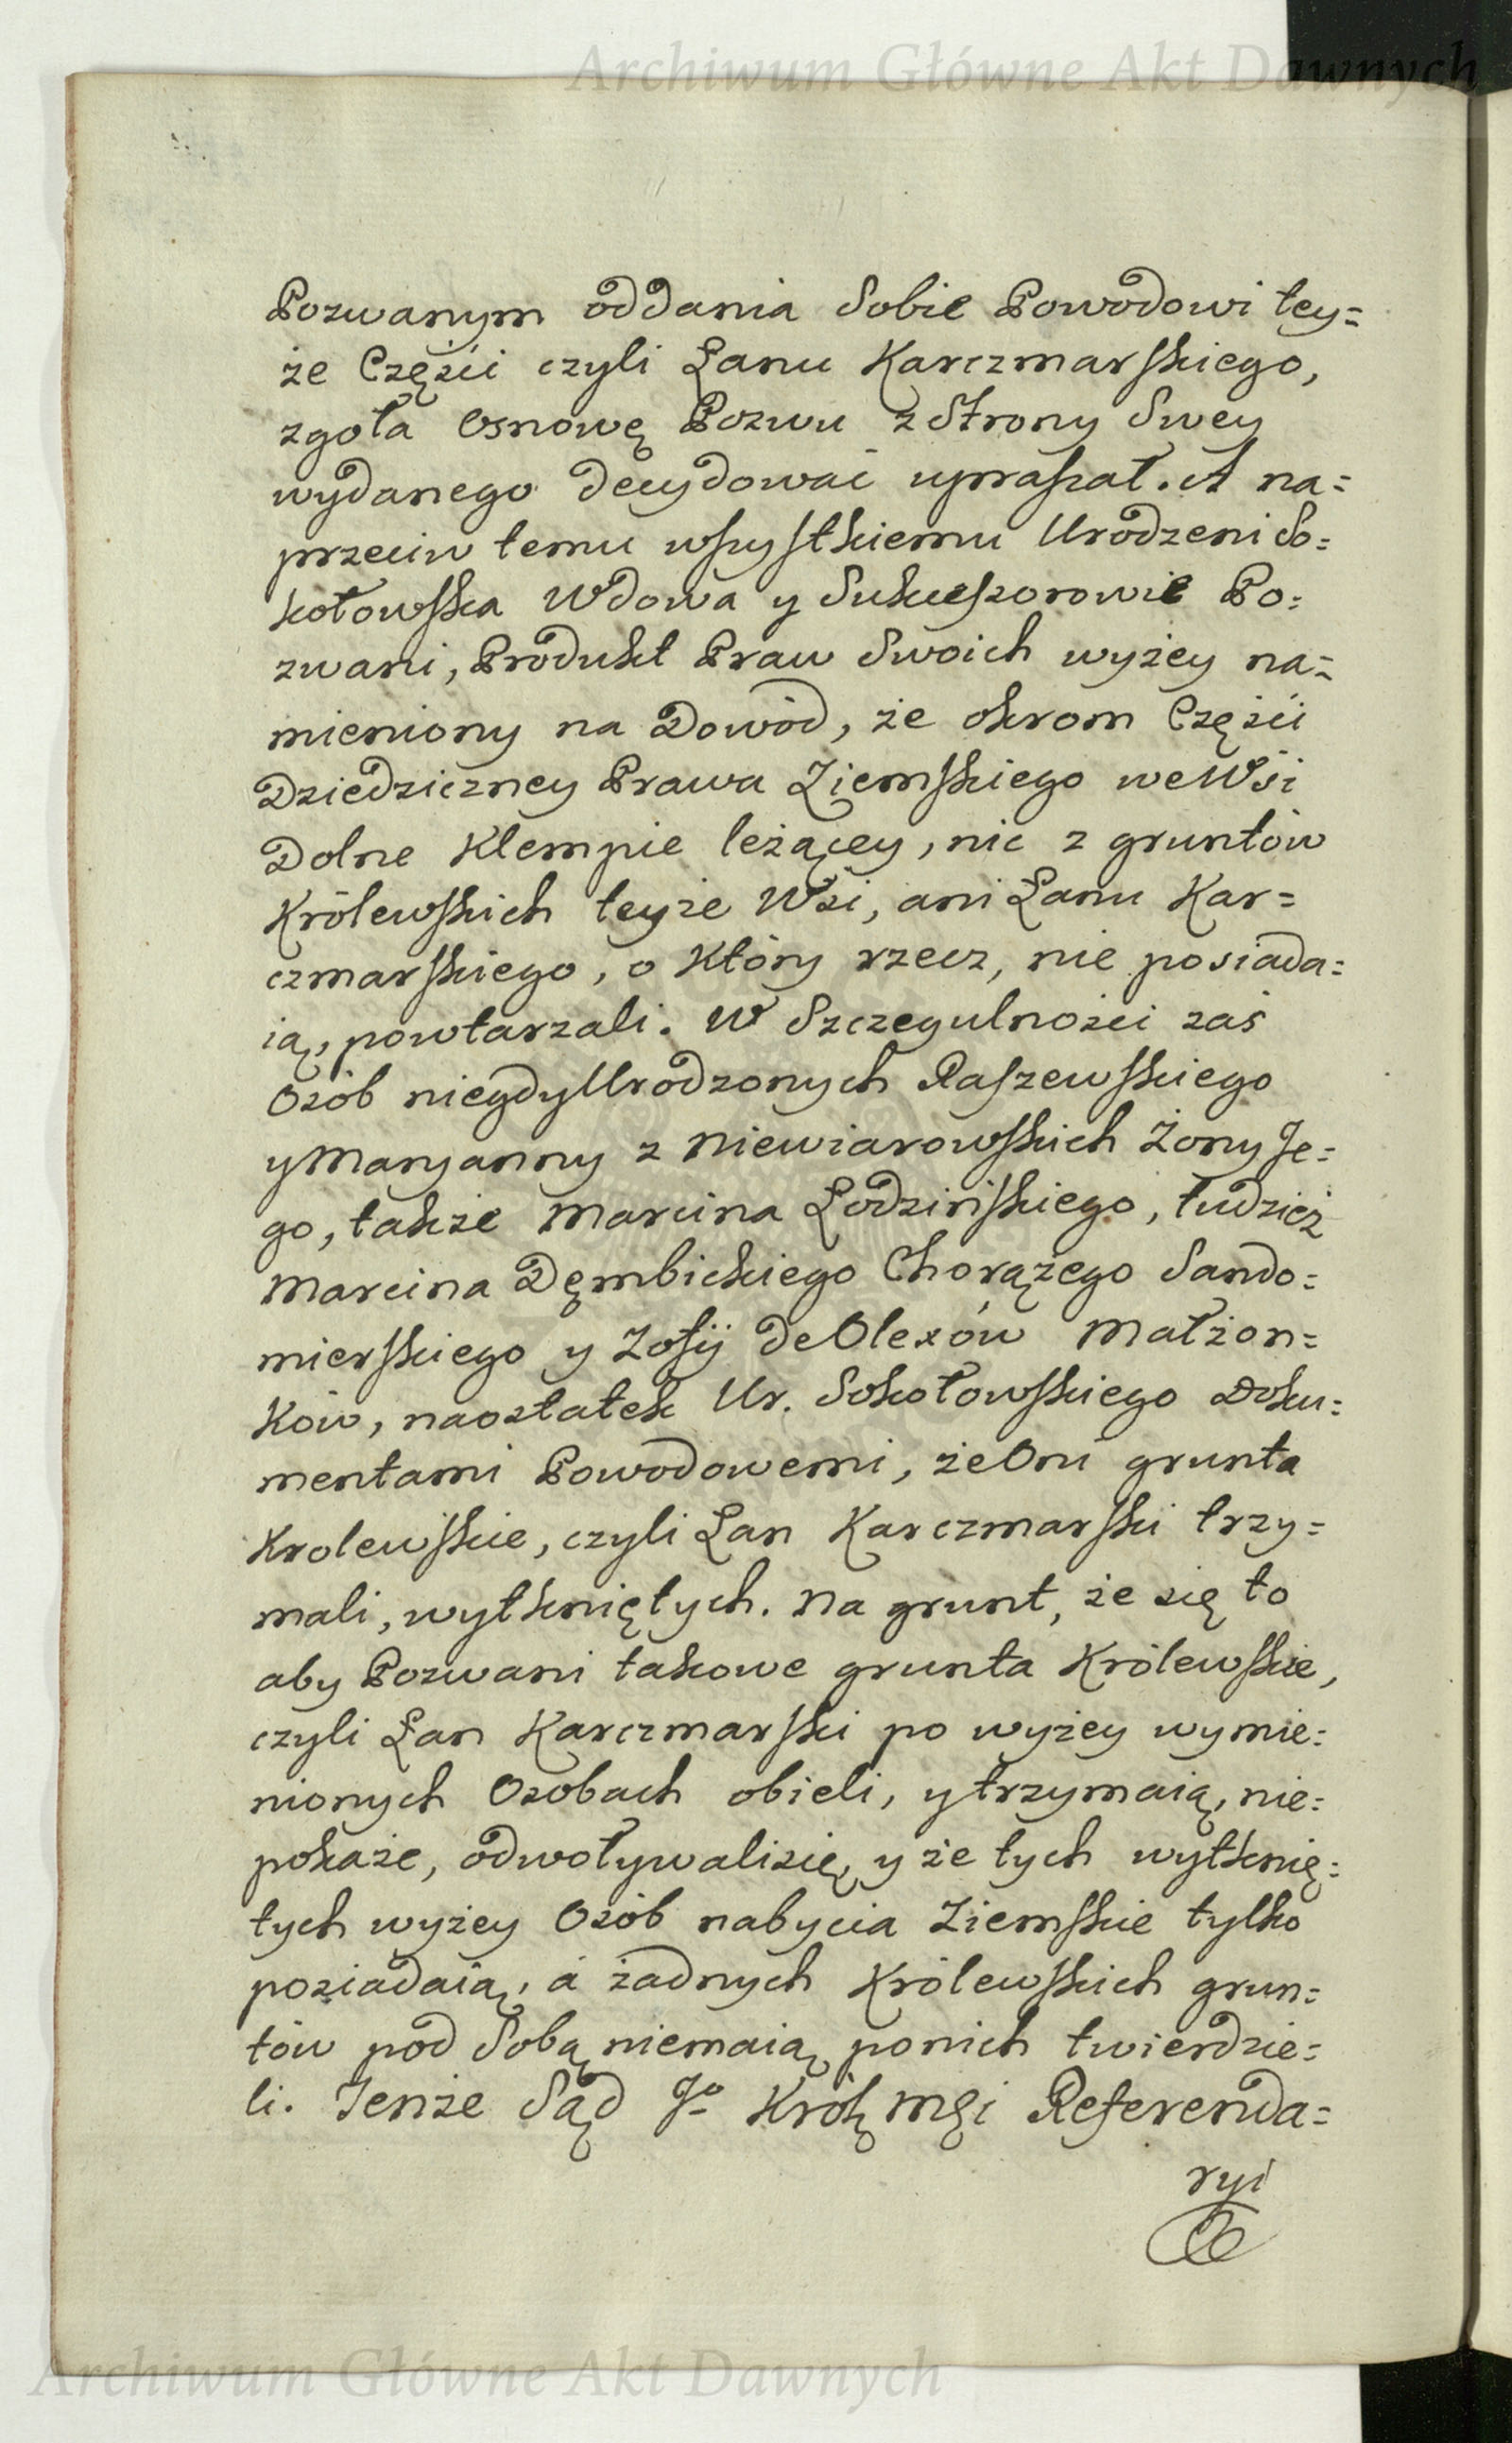 Archiwum Główne Akt Dawnych
Pozwanym oddania Sobie Powodowi tey=
że Części czyli Łanu Karczmarskiego,
zgoła Osnowę Pozwu z Strony Swey
wydanego decydować upraszał. A na=
przeciw temu wszystkiemu Urodzeni So=
kołowska Wdowa y Sukcessorowie Po=
zwani, Produkt Praw Swoich wyżey na=
mieniony na Dowód, że okrom Części
Dziedziczney Prawa Ziemskiego we Wsi
Dolne Klempie leżącey, nic z gruntów
Królewskich teyże Wsi, ani Łanu Kar=
czmarskiego, o który rzecz, nie posiada=
ią, powtarzali. W Szczegulności zaś
Osób niegdy Urodzonych Raszewskiego
y Maryanny z Niewiarowskich Żony Je=
go, także Marcina Łodzińskiego, tudzież
Marcina Dęmbickiego Chorążego Sando=
mierskiego y Zofij de Olexów Małżon=
ków, naostatek Ur. Sokołowskiego Doku=
mentami Powodowemi, że Oni grunta
Krolewskie, czyli Łan Karczmarski trzy=
mali, wytkniętych. Na grunt, że się to
aby Pozwani takowe grunta Królewskie,
czyli Łan Karczmarski po wyżey wymie=
nionych Osobach obieli, y trzymaią, nie=
pokaże, odwoływali się, y że tych wytknię=
tych wyżey Osób nabycia Ziemskie tylko
posiadaią, a żadnych Królewskich grun=
tów pod Sobą niemaią ponich twierdzie=
li. Jenże Sąd Jo Królę Męi Referenda=
ryi
Archiwum Główne Akt Dawnych